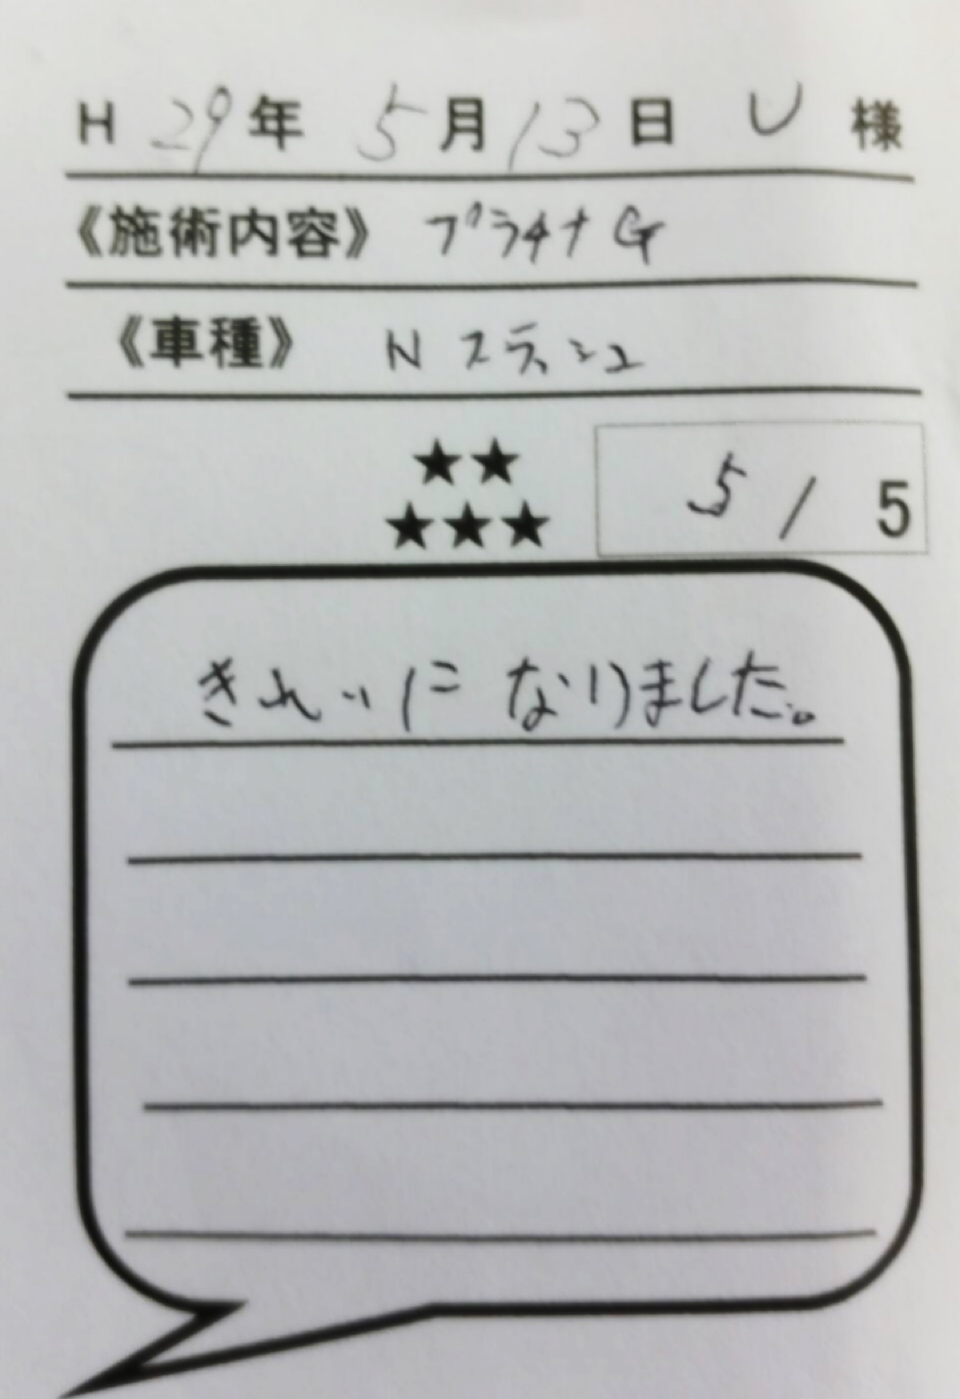 H 29年 5月13日 U 様
《施術内容》 プラチナG
《車種》 Nスラッシュ
★★
★★★ 5/5
きれいになりました。